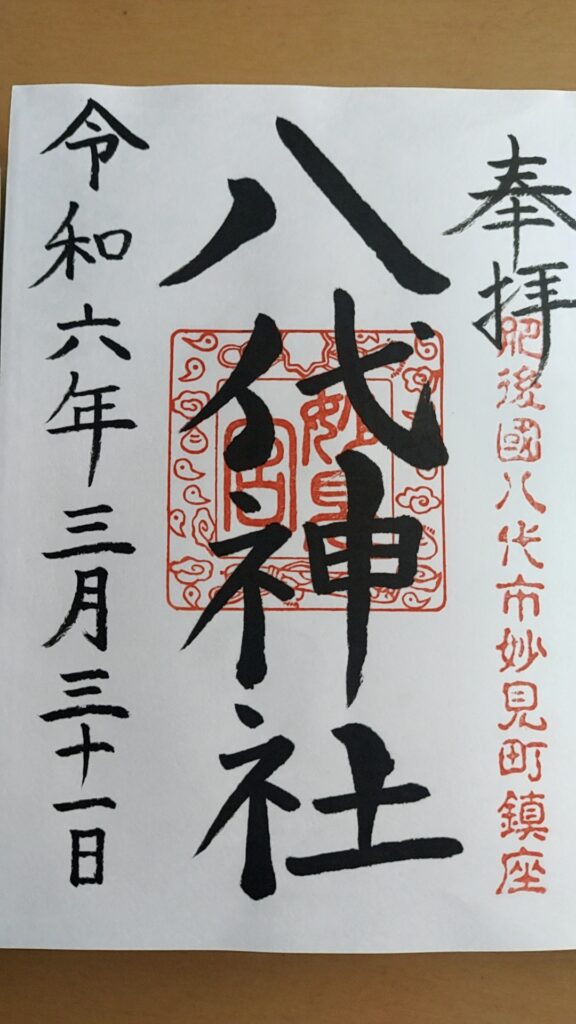 奉拝
肥後國八代市妙見町鎮座
八代神社
妙見宮
令和六年三月三十一日